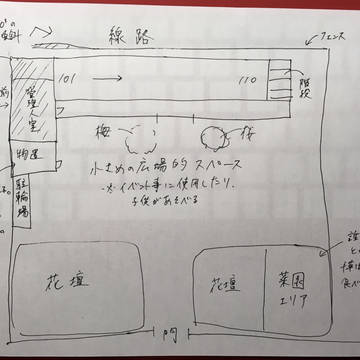 線路
フェンス
101 → 110
階段
管理人室
物置
駐輪場
梅
桜
小さめの広場的スペース
※イベント事に使用したり、
子供があそべる
花壇
花壇
菜園
エリア
門